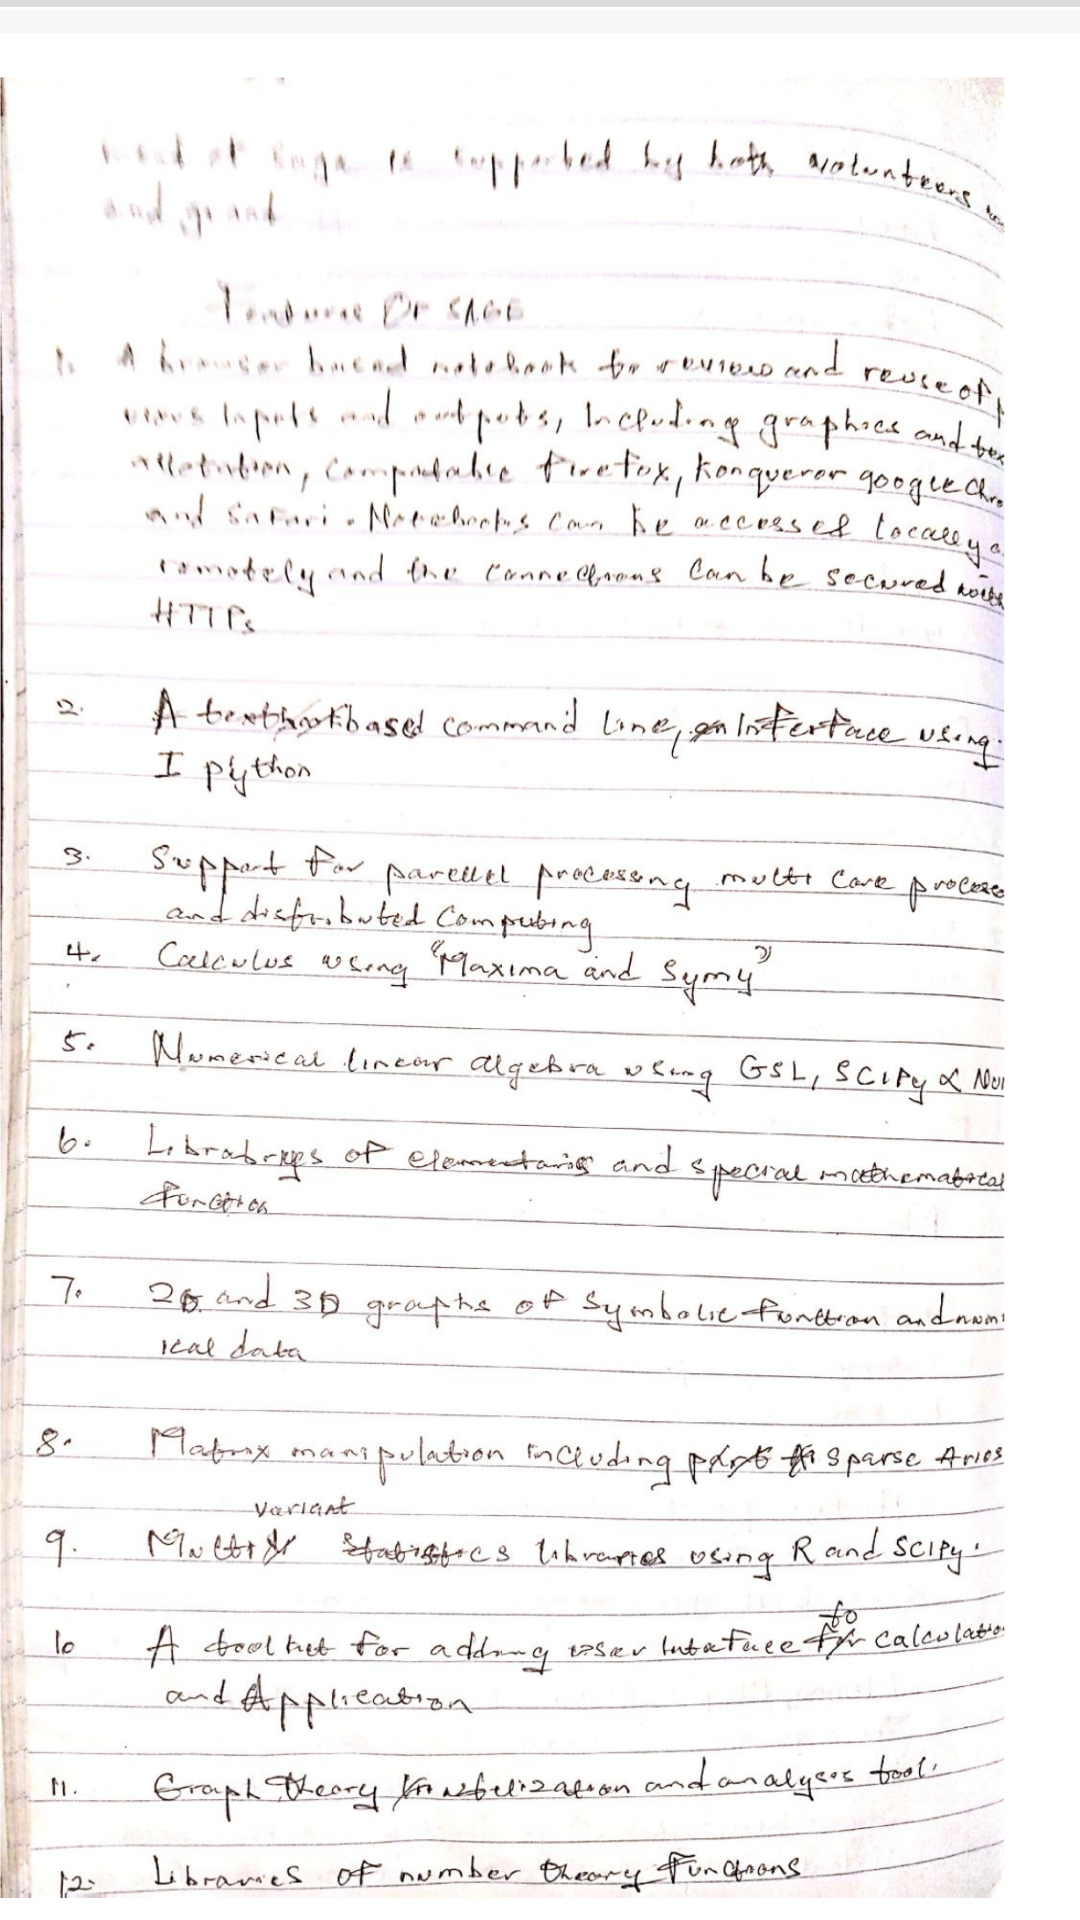 of Sage is supported by both volunteers
and grant
Features OF SAGE
1. A browser based notebook for review and reuse of p
vious Inputs and outputs, Including graphics and tex
Firefox, Konqueror google Chro
and Safari. Notebooks can be accessed locally o
remotely and the connections Can be secured
HTTPs
2. A textbookbased command line, an Interface using
I python
3. Support for parellel processing multi Core process
and distributed Computing
4. Calculus using "Maxima and Symy"
5. Numerical linear algebra using GSL, SCIPy & Nu
6. of elementaries and special mathematical
function
7. 2D and 3D graphs of Symbolic function and num
ical data
8. Matrix manipulation including sparse Aries
variant
9. Multi statistics libraries using R and SCIPy.
to
10 A tool ket for adding user Intaface for calculatio
and Application
11. Graph theory and analyses tool.
12. Libraries of number theory functions